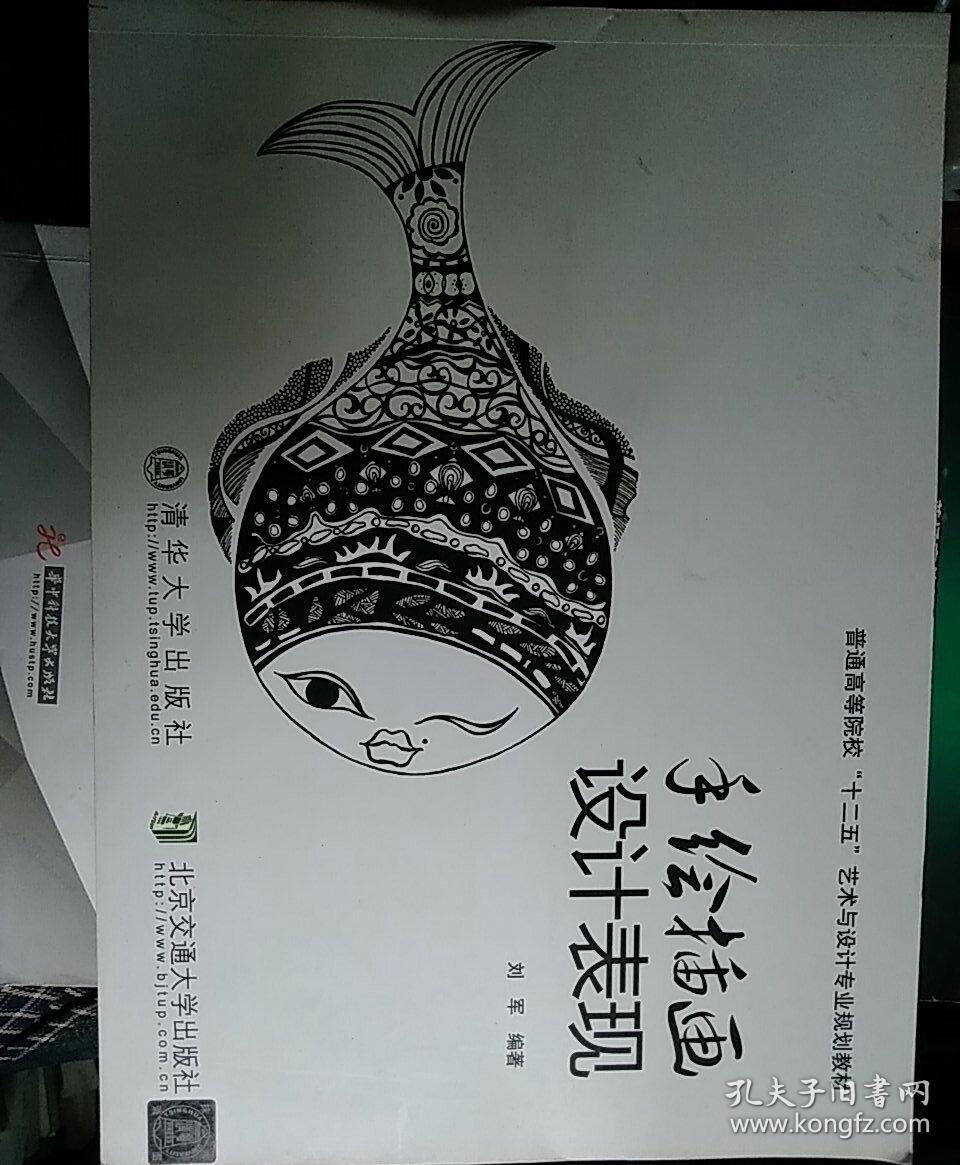 普通高等院校“十二五”艺术与设计专业规划教材
手绘插画
设计表现
刘 军 编著
清华大学出版社
http://www.tup.tsinghua.edu.cn
北京交通大学出版社
http://www.bjtup.com.cn
TSINGHUA
华中科技大学出版社
http://www.hustp.com
孔夫子旧书网
www.kongfz.com